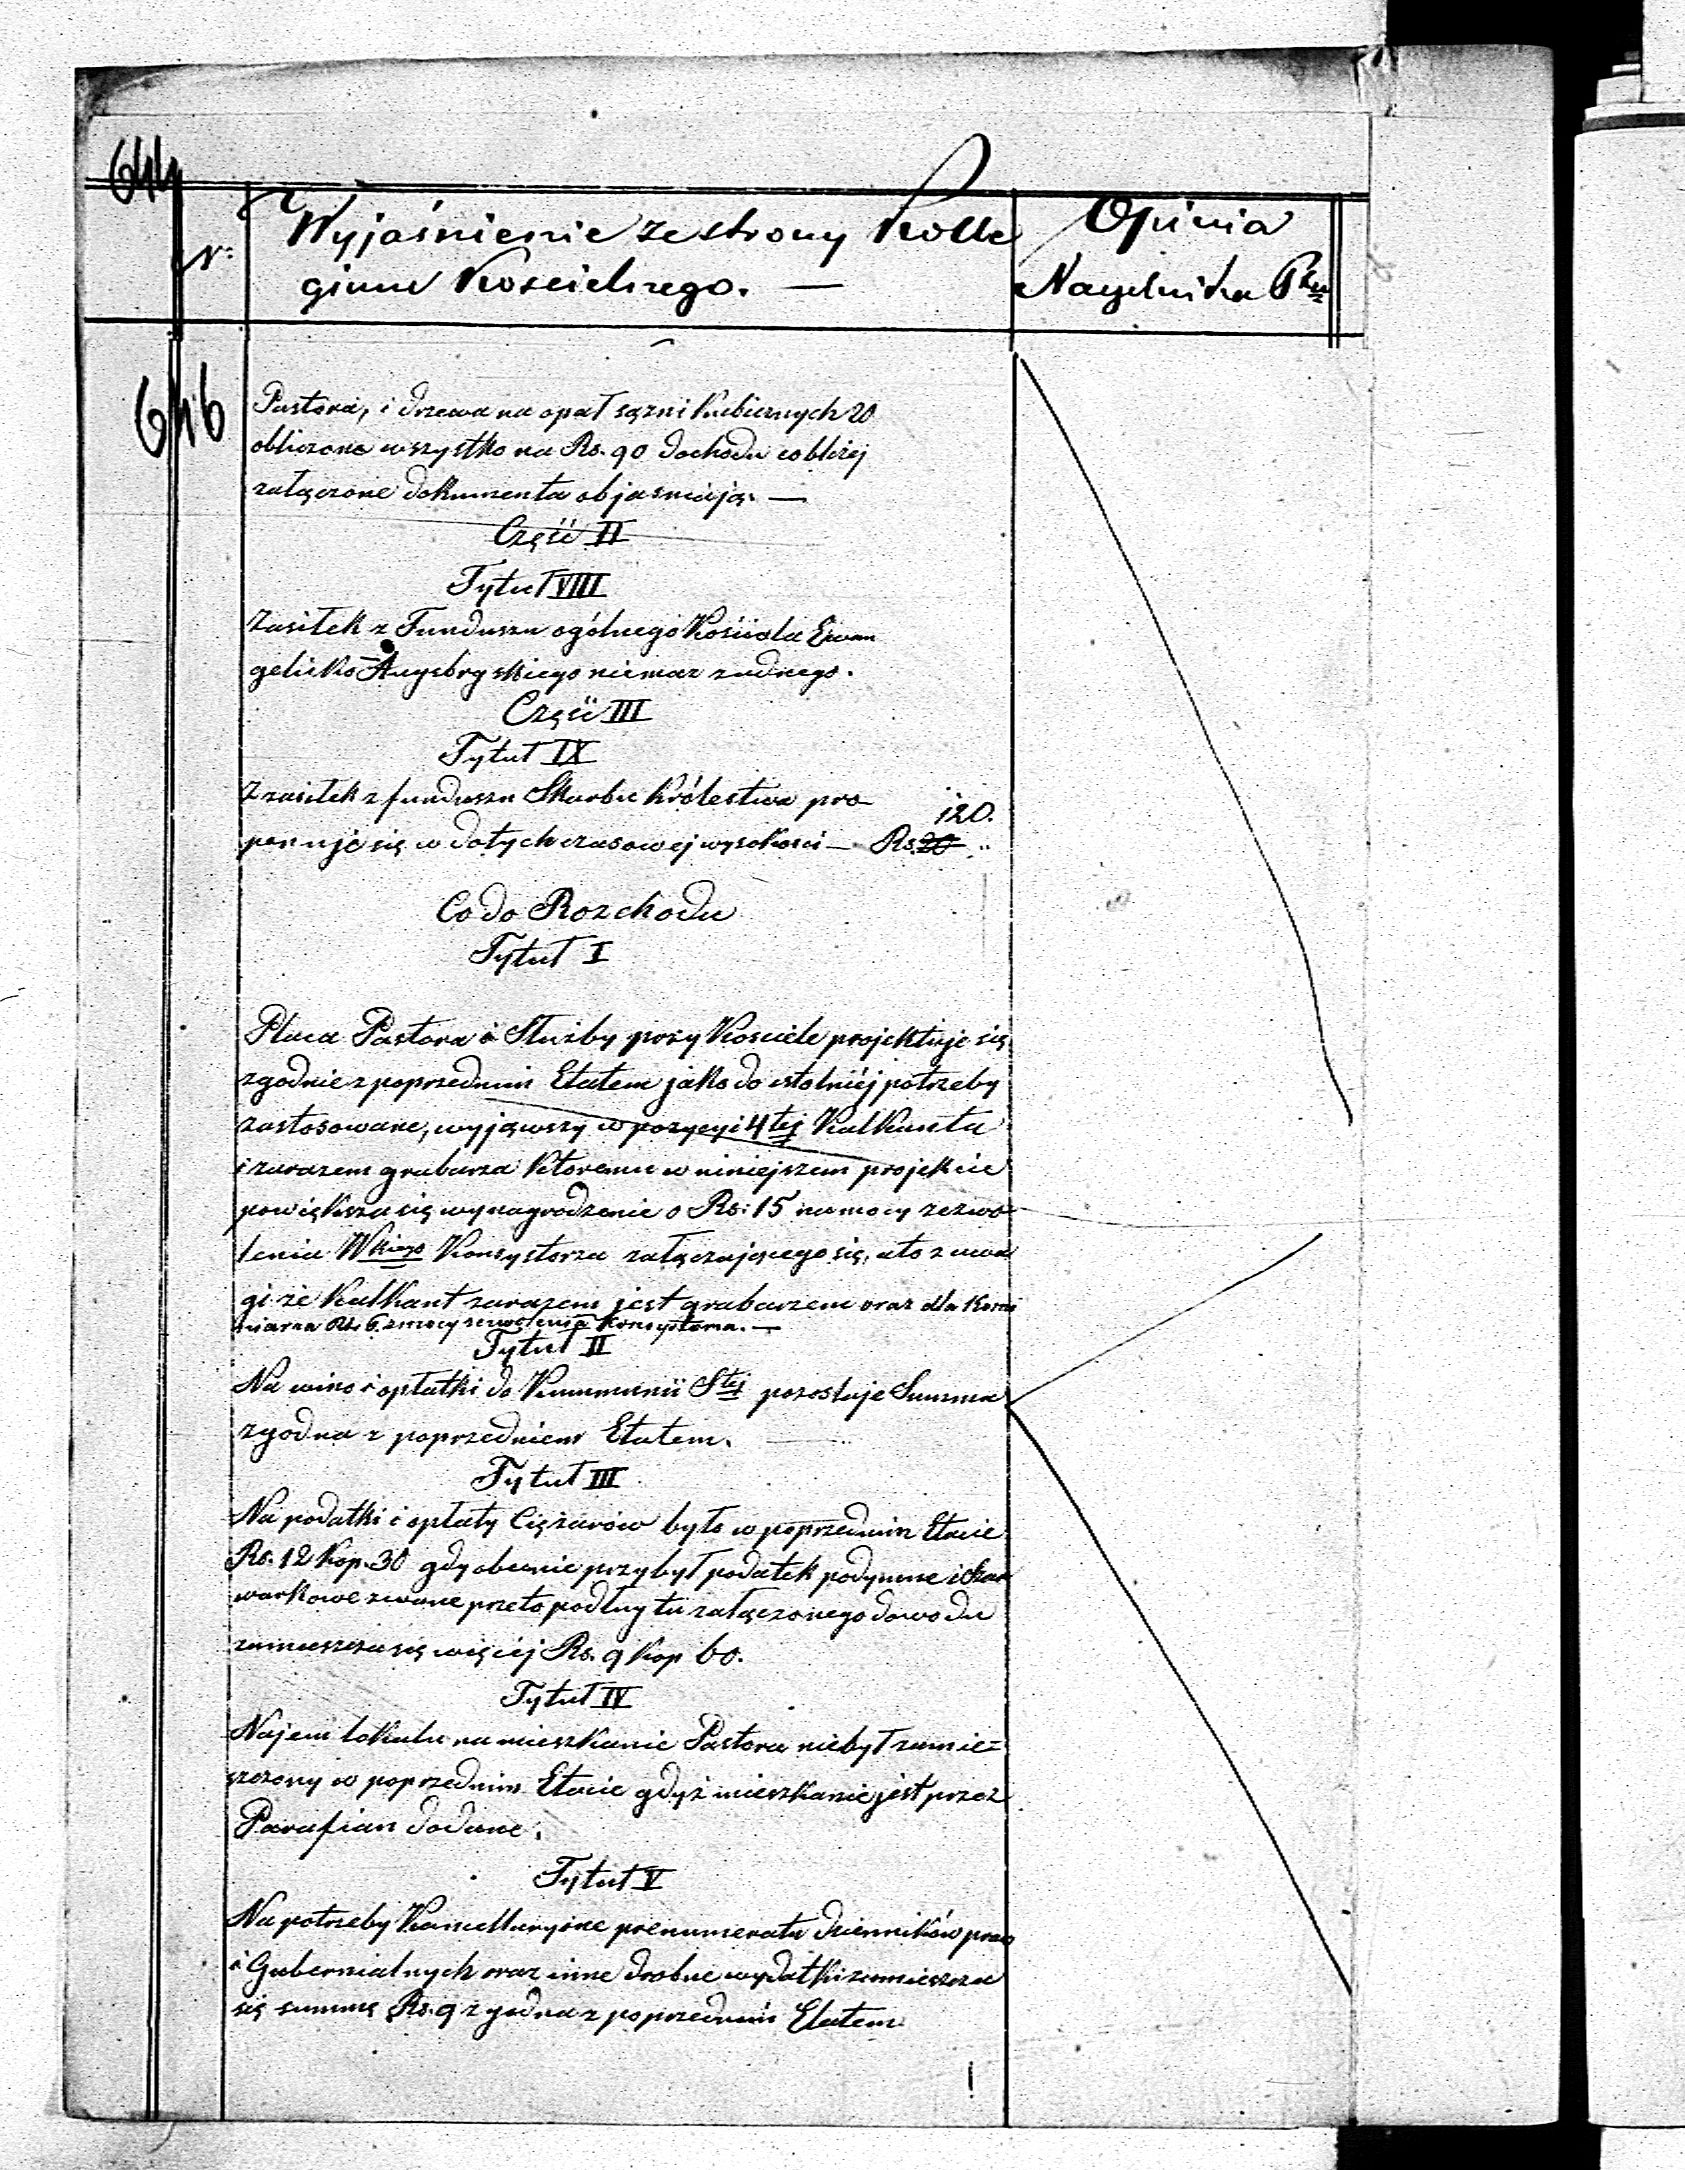 644
N:
Wyjaśnienie ze strony Kolle
gium Kościelnego. —
Opinia
Naczelnika Ptu
646
Pastora, i drzewa na opał sążni kubicznych 20
obliczono wszystko na Rs. 90 dochodu co bliżej
załączone dokumenta objasniają. —
Część II
Tytuł VIII
Zasiłek z Funduszu ogólnego Kościoła Ewan
gelicko-Augsbryskiego niemasz żadnego.
Część III
Tytuł IX
Zasiłek z funduszu Skarbu Królestwa pro-
120.
ponuje się w dotychczasowej wysokości — Rs. 20
Co do Rozchodu
Tytuł I
Płaca Pastora i Służby przy Kościele projektuje się
zgodnie z poprzednim Etatem jako do istotnéj potrzeby
zastosowane, wyjąwszy w pozycyi 4tej Kalkanta
i zarazem grabarza któremu w niniejszem projekcie
powiększa się wynagrodzenie o Rs: 15 na mocy zezwo-
lenia Wkiego Konsystorza załączającego się, a to z uwa
gi że Kalkant zarazem jest grabarzem oraz dla Komi
niarza Rs. 6 z mocy zezwolenia Konsystorza. —
Tytuł II
Na wino i opłatki do Kommunii Stej pozostaje Summa
zgodna z poprzedniem Etatem. —
Tytuł III
Na podatki i opłaty Ciężarów było w poprzednim Etacie
Rs. 12 Kop. 30 gdy obecnie przybył podatek podymne i Szar
warkowe zwane przeto podług tu załączonego dowodu
zamieszcza się więcéj Rs. 9 Kop 60.
Tytuł IV
Najem lokalu na mieszkanie Pastora niebył zamie=
szczony w poprzednim Etacie gdyż mieszkanie jest przez
Parafian dodane.
Tytuł V
Na potrzeby Kancellaryjne prenumerata dzienników praw
i Gubernialnych oraz inne drobne wydatki zamieszcza
się summę Rs. 9 zgodna z poprzednim Etatem